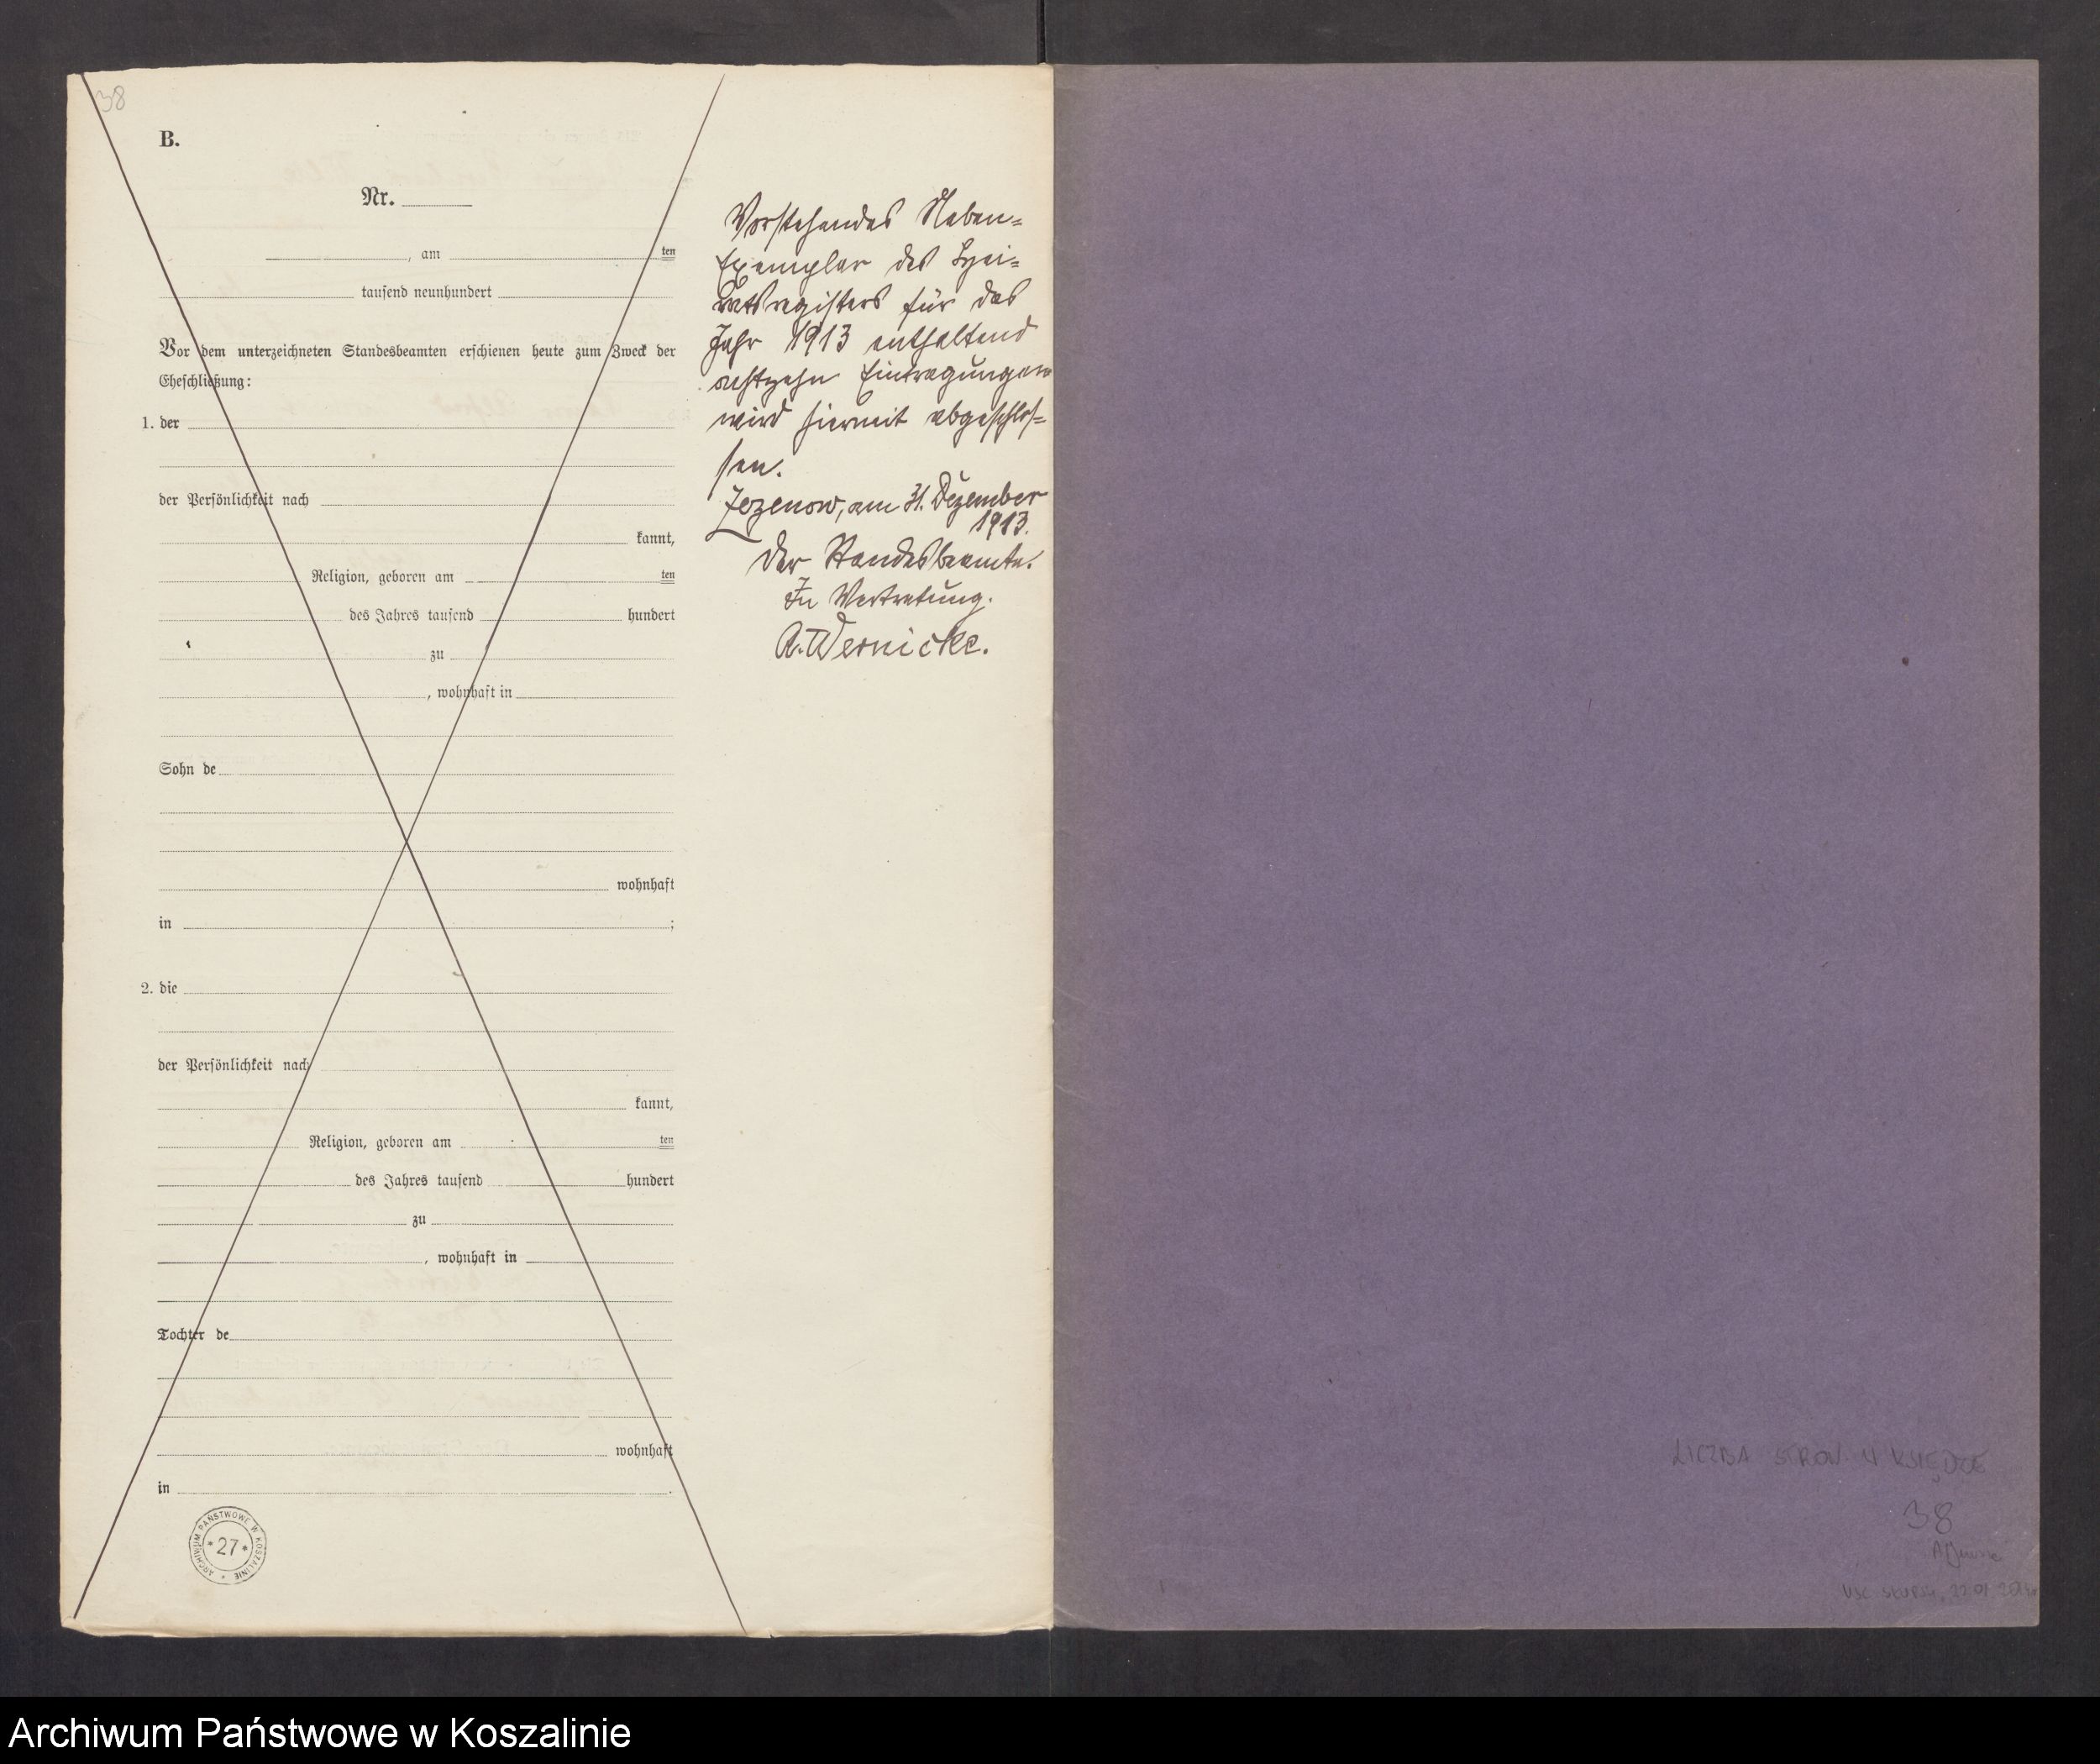 38
B.
Nr.
, am ten
tausend neunhundert
Vor dem unterzeichneten Standesbeamten erschienen heute zum Zweck der
Eheschließung:
1. der
der Persönlichkeit nach
kannt,
Religion, geboren am ten
des Jahres tausend hundert
zu
, wohnhaft in
Sohn de
wohnhaft
in ;
2. die
der Persönlichkeit nach
kannt,
Religion, geboren am ten
des Jahres tausend hundert
zu
, wohnhaft in
Tochter de
wohnhaft
in .
ARCHIWUM PAŃSTWOWE W KOSZALINIE * 27 *
Vorstehendes Neben=
Exemplar des Hei=
ratsregisters für das
Jahr 1913 enthaltend
achtzehn Eintragungen
wird hiermit abgeschlos=
sen.
Zezenow, am 31. Dezember
1913.
Der Standesbeamte.
In Vertretung.
A. Wernicke.
LICZBA STRON W KSIĘDZE
38
USC SŁUPSK, 22 01
Archiwum Państwowe w Koszalinie